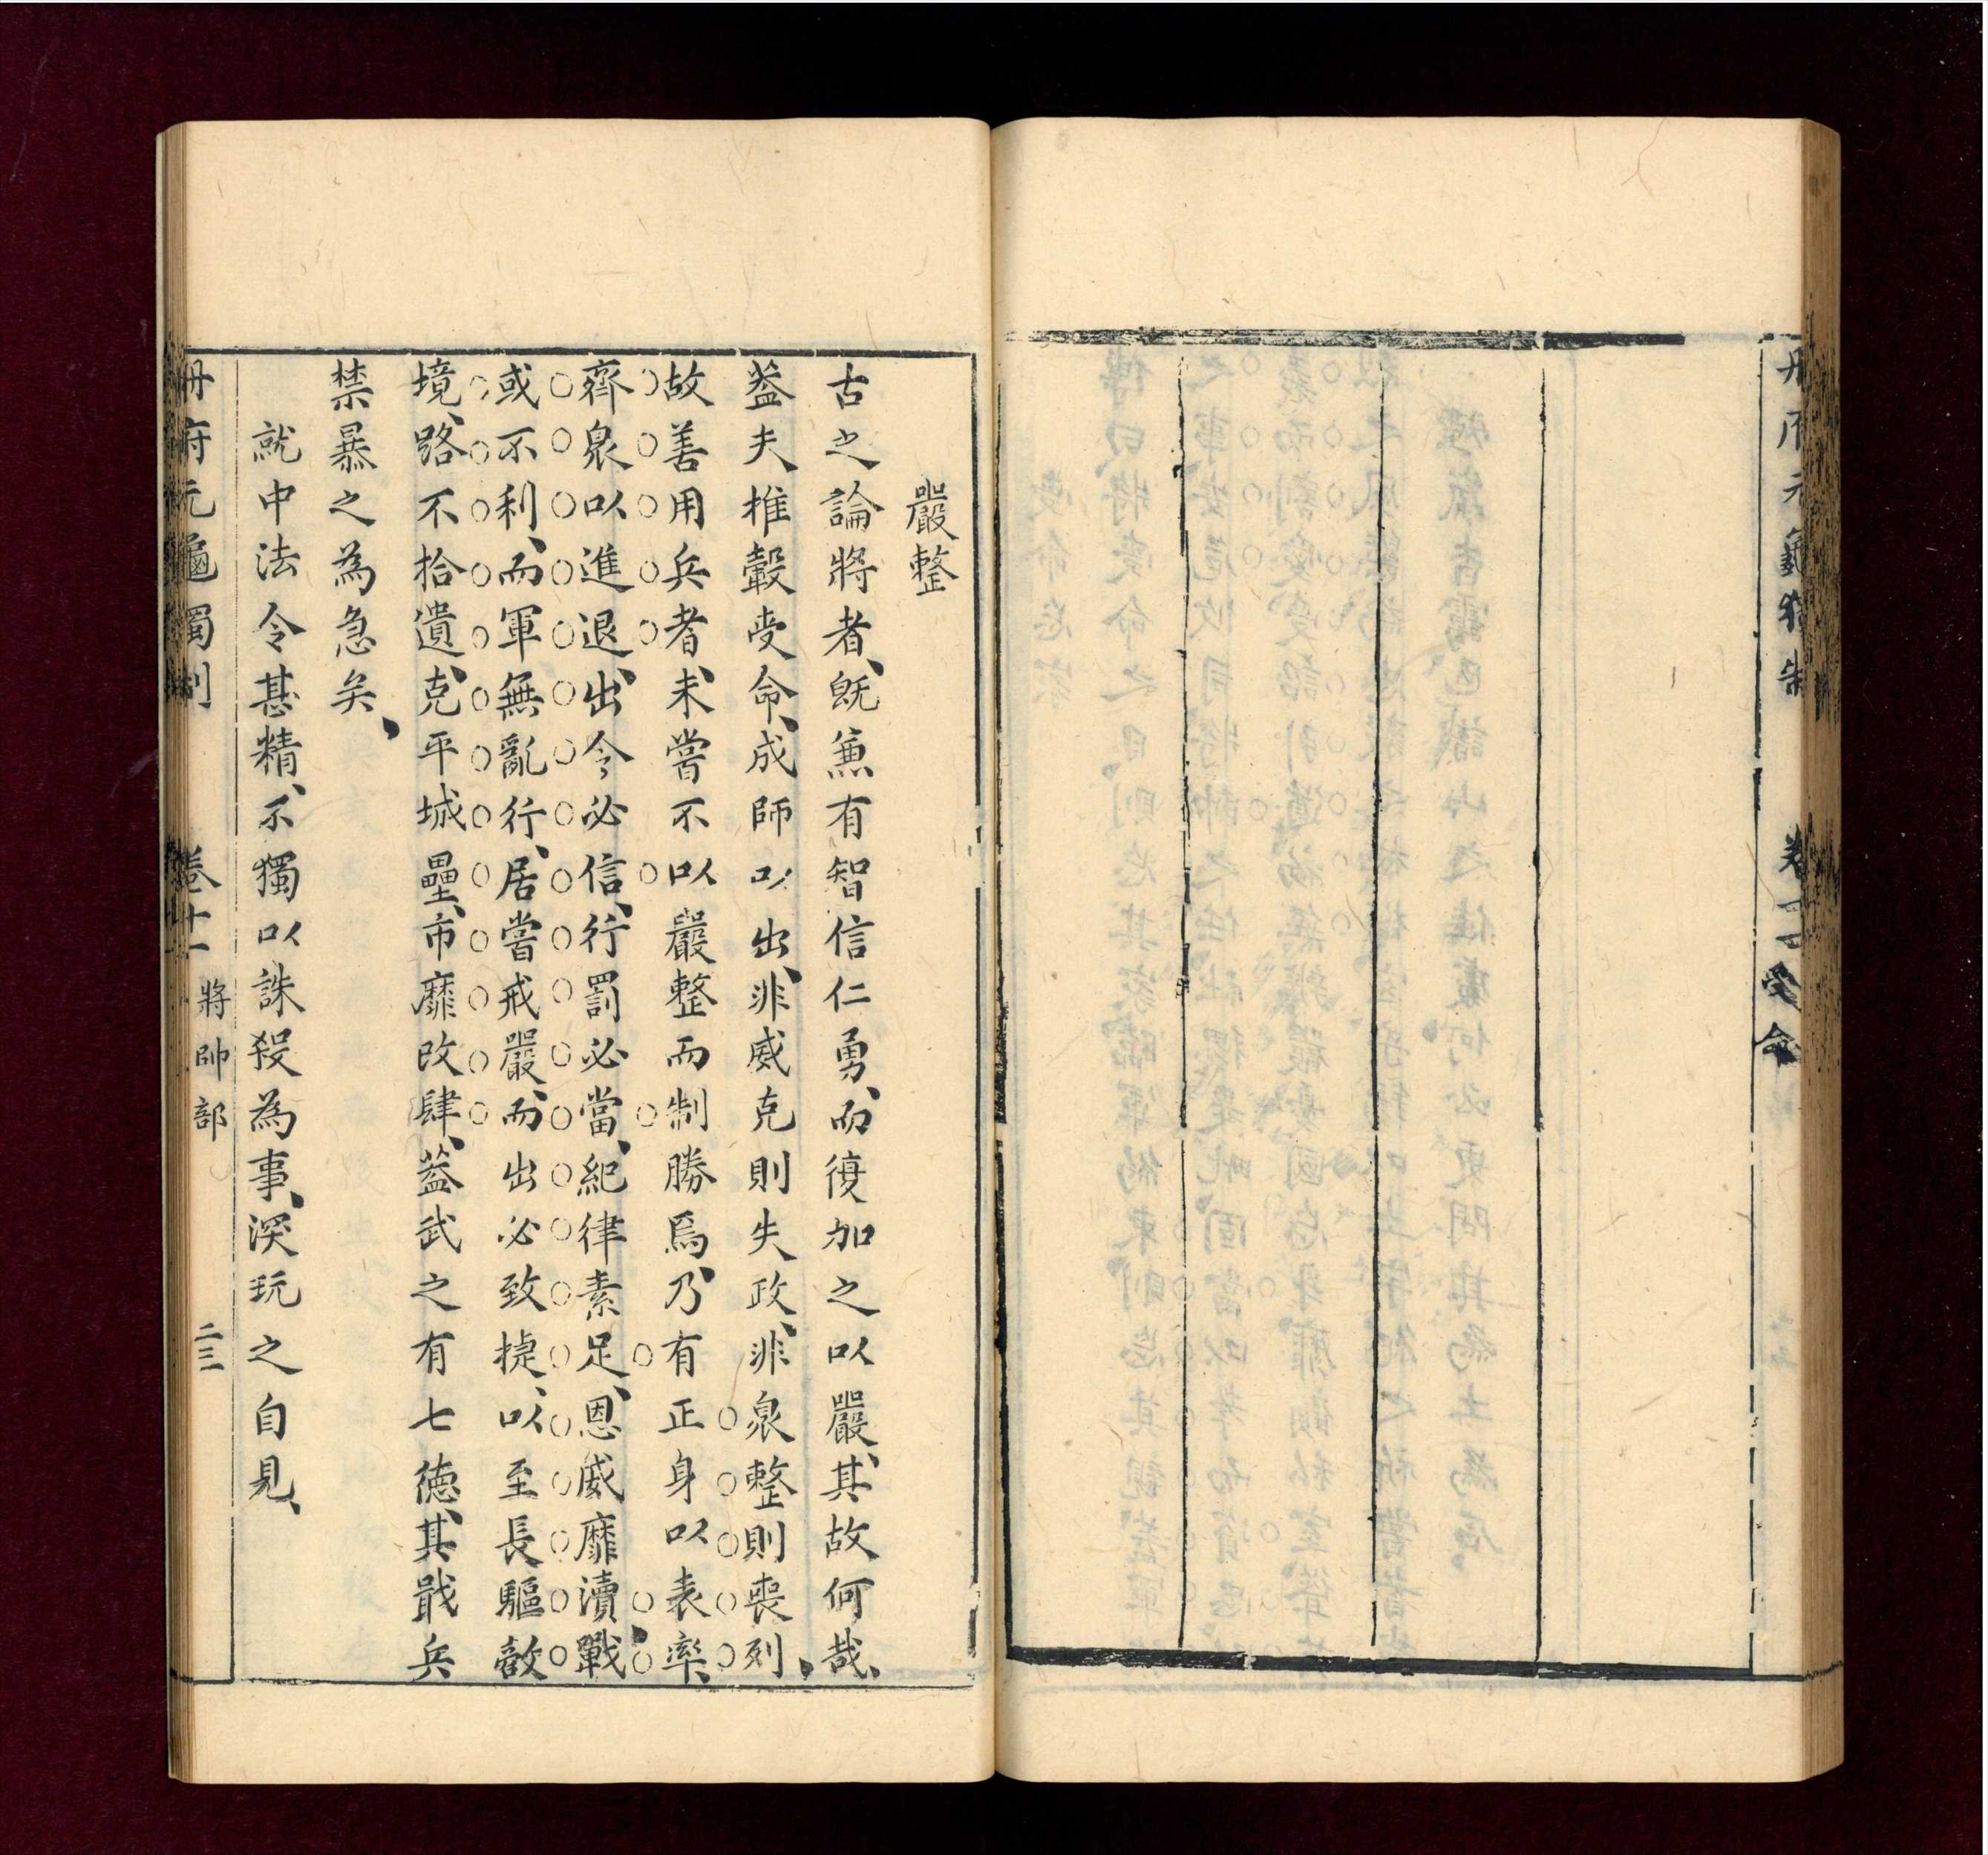 冊府元龜獨制 卷十一 受命
嚴整
古之論將者、旣兼有智信仁勇、而復加之以嚴、其故何哉、
葢夫推轂受命、成師以出、非威克則失政、非衆整則喪列、
故善用兵者、未嘗不以嚴整而制勝焉、乃有正身以表率、
齊衆以進退、出令必信、行罰必當、紀律素足、恩威靡瀆、戰
或不利、而軍無亂行、居嘗戒嚴、而出必致捷、以至長驅敵
境、路不拾遺、克平城壘、市靡改肆、葢武之有七德、其戢兵
禁暴之為急矣、
就中法令甚精、不獨以誅殺為事、深玩之自見、
冊府元龜獨制 卷十一 將帥部 二三